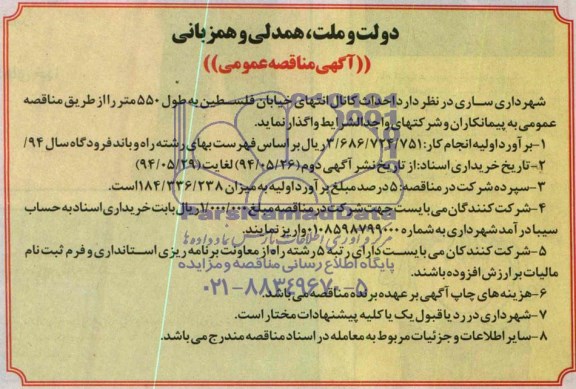 دولت و ملت، همدلی و همزبانی
((آگهی مناقصه عمومی))
شهرداری ساری در نظر دارد احداث کانال انتهای خیابان فلسطین به طول ۵۵۰ متر را از طریق مناقصه
عمومی به پیمانکاران و شرکتهای واجدالشرایط واگذار نماید.
۱- برآورد اولیه انجام کار: ۳/۶۸۶/۷۲۴/۷۵۱ ریال بر اساس فهرست بهای رشته راه و باند فرودگاه سال ۹۴/
۲- تاریخ خریداری اسناد: از تاریخ نشر آگهی دوم (۹۴/۰۵/۲۶) لغایت (۹۴/۰۵/۲۹)
۳- سپرده شرکت در مناقصه: ۵ درصد مبلغ برآورد اولیه به میزان ۱۸۴/۳۳۶/۲۳۸ است.
۴- شرکت کنندگان می بایست جهت شرکت در مناقصه مبلغ ۱/۰۰۰/۰۰۰ ریال بابت خریداری اسناد به حساب
سیبا درآمد شهرداری به شماره ۰۱۰۸۵۹۸۷۹۹۰۰۰ واریز نمایند.
۵- شرکت کنندگان می بایست دارای رتبه ۵ رشته راه از معاونت برنامه ریزی استانداری و فرم ثبت نام
مالیات بر ارزش افزوده باشند.
۶- هزینه های چاپ آگهی بر عهده برنده مناقصه می باشد.
۷- شهرداری در رد یا قبول یک یا کلیه پیشنهادات مختار است.
۸- سایر اطلاعات و جزئیات مربوط به معامله در اسناد مناقصه مندرج می باشد.
ParsNamadData
پایگاه اطلاع رسانی مناقصه و مزایده
۰۲۱-۸۸۳۴۹۶۷۰-۵